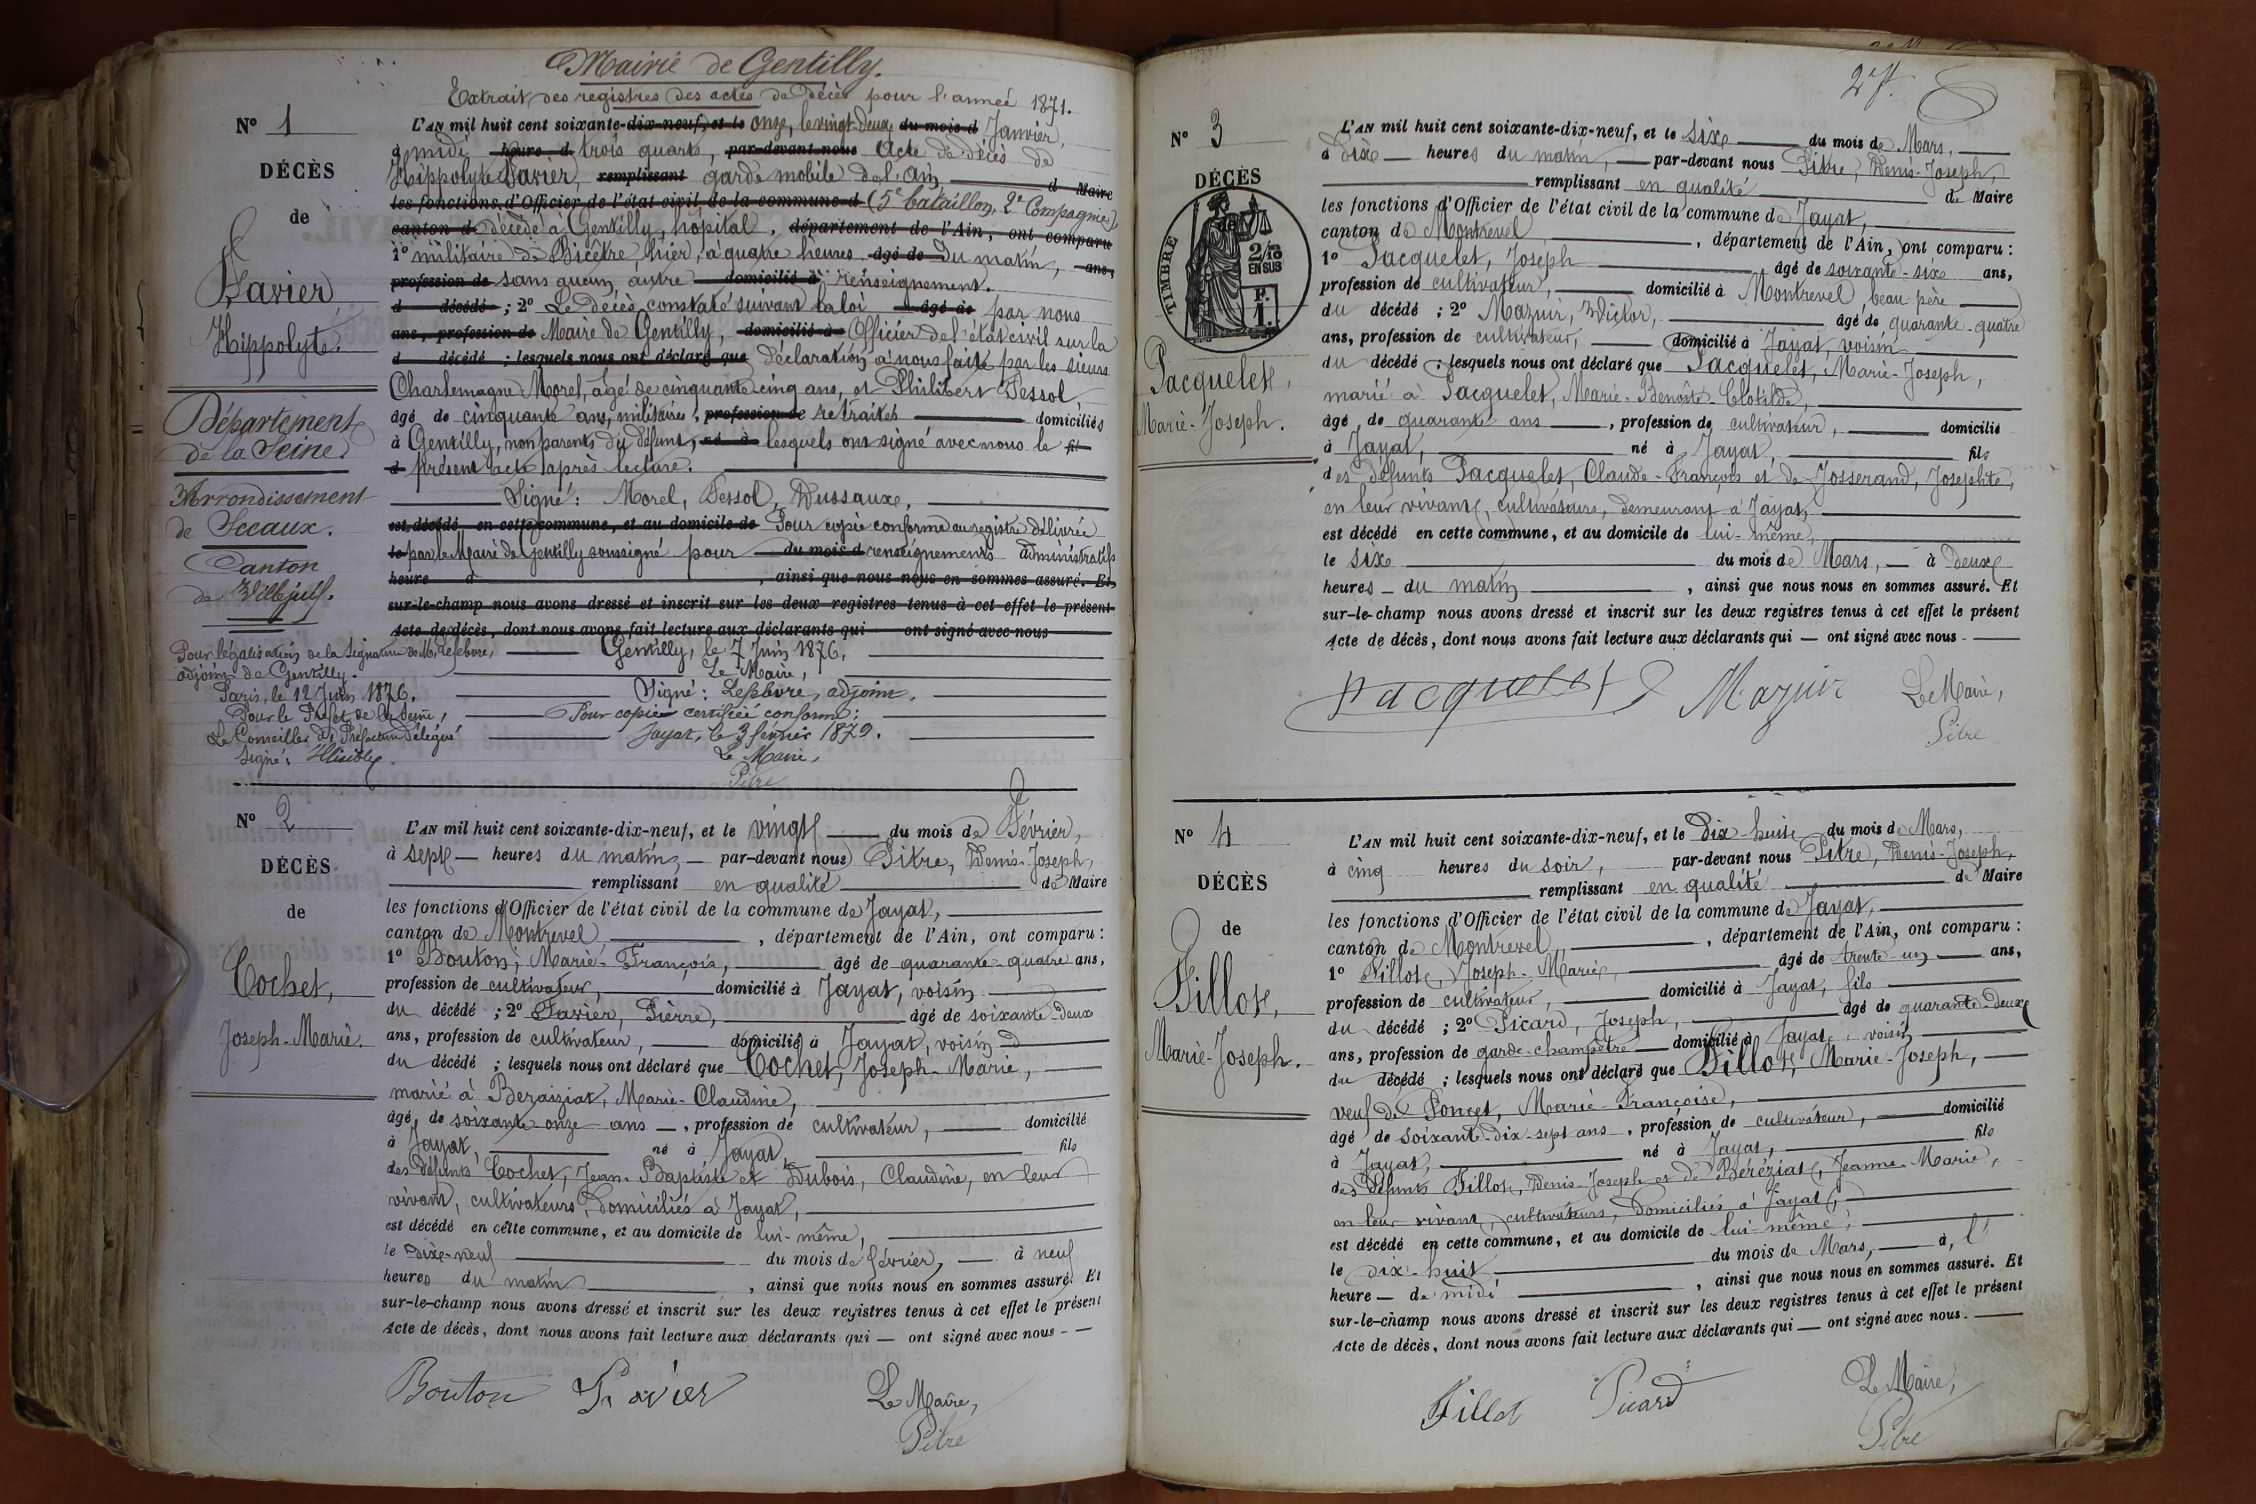 Mairie de Gentilly.
Extrait des registres des actes de décès pour l'année 1871.
N° 1
DÉCÈS
de
Favier
Hippolyte.
Département
de la Seine
Arrondissement
de Sceaux.
Canton
de Villejuif.
Pour légalisation de la signature de M. Lefebvre,
adjoint de Gentilly.
Paris, le 12 Juin 1876.
Pour le Préfet de la Seine,
Le Conseiller de Préfecture Délégué
Signé: Illisible.
L'AN mil huit cent soixante-dix-neuf, et le onze, le vingt-deux du mois d Janvier,
à midi heure d trois quarts, par-devant nous Acte de décès de
Hippolyte Favier, remplissant garde mobile de l'Ain d Maire
les fonctions d'Officier de l'état civil de la commune d (5e bataillon, 2e Compagnie),
canton d décédé à Gentilly, hôpital, département de l'Ain, ont comparu
1° militaire de Bicêtre, hier, à quatre heures âgé de du matin, ans,
profession de sans aucun autre domicilié à renseignement.
d décédé ; 2° Le décès constaté suivant la loi âgé de par nous
ans, profession de Maire de Gentilly, domicilié à Officier de l'état civil sur la
d décédé ; lesquels nous ont déclaré que déclaration à nous faite par les sieurs
Charlemagne Morel, âgé de cinquante cinq ans, et Philibert Pessol,
âgé de cinquante ans, militaires, profession de retraités domiciliés
à Gentilly, non parents du défunt, né à lesquels ont signé avec nous le fil
d présent acte après lecture.
Signé: Morel, Pessol, Dussaux.
est décédé en cette commune, et au domicile de Pour copie conforme au registre délivrée
le par le Maire de Gentilly soussigné pour du mois d renseignements administratifs
heure d , ainsi que nous nous en sommes assuré. Et
sur-le-champ nous avons dressé et inscrit sur les deux registres tenus à cet effet le présent
Acte de décès, dont nous avons fait lecture aux déclarants qui ont signé avec nous
Gentilly, le 7 Juin 1876.
Le Maire,
Signé: Lefebvre, adjoint.
Pour copie certifiée conforme:
Jayat, le 3 février 1879.
Le Maire,
Pitre
N° 2
DÉCÈS
de
Cochet,
Joseph-Marie.
L'AN mil huit cent soixante-dix-neuf, et le vingt du mois de Février,
à sept heures du matin, par-devant nous Pitre, Denis-Joseph,
remplissant en qualité de Maire
les fonctions d'Officier de l'état civil de la commune de Jayat,
canton de Montrevel , département de l'Ain, ont comparu :
1° Bouton, Marie-François, âgé de quarante-quatre ans,
profession de cultivateur, domicilié à Jayat, voisin
du décédé ; 2° Favier, Pierre, âgé de soixante-deux
ans, profession de cultivateur, domicilié à Jayat, voisin
du décédé ; lesquels nous ont déclaré que Cochet, Joseph-Marie,
marié à Bezaiziat, Marie-Claudine,
âgé de soixante onze ans , profession de cultivateur, domicilié
à Jayat, né à Jayat, fils
des défunts Cochet, Jean-Baptiste et Dubois, Claudine, en leur
vivant, cultivateurs, domiciliés à Jayat,
est décédé en cette commune, et au domicile de lui-même,
le dix-neuf du mois de février, à neuf
heures du matin , ainsi que nous nous en sommes assuré. Et
sur-le-champ nous avons dressé et inscrit sur les deux registres tenus à cet effet le présent
Acte de décès, dont nous avons fait lecture aux déclarants qui — ont signé avec nous
Bouton Favier Le Maire,
Pitre
2e f.
N° 3
DÉCÈS
de
TIMBRE
2/10
EN SUS
F.
1.
Pacquelet,
Marie-Joseph.
L'AN mil huit cent soixante-dix-neuf, et le six du mois de Mars,
à dix heures du matin, par-devant nous Pitre, Denis-Joseph,
remplissant en qualité de Maire
les fonctions d'Officier de l'état civil de la commune de Jayat,
canton de Montrevel , département de l'Ain, ont comparu :
1° Pacquelet, Joseph âgé de soixante-six ans,
profession de cultivateur, domicilié à Montrevel, beau père
du décédé ; 2° Mazuir, Victor, âgé de quarante-quatre
ans, profession de cultivateur, domicilié à Jayat, voisin
du décédé ; lesquels nous ont déclaré que Pacquelet, Marie-Joseph,
marié à Pacquelet, Marie-Benoîte-Clotilde,
âgé de quarante ans , profession de cultivateur, domicilié
à Jayat, né à Jayat, fils
des défunts Pacquelet, Claude-François et de Josserand, Josephte,
en leur vivant, cultivateurs, demeurant à Jayat,
est décédé en cette commune, et au domicile de lui-même,
le six du mois de Mars, à deux
heures du matin , ainsi que nous nous en sommes assuré. Et
sur-le-champ nous avons dressé et inscrit sur les deux registres tenus à cet effet le présent
Acte de décès, dont nous avons fait lecture aux déclarants qui — ont signé avec nous
Pacquelet Mazuir Le Maire,
Pitre
N° 4
DÉCÈS
de
Fillot,
Marie-Joseph.
L'AN mil huit cent soixante-dix-neuf, et le Dix-huit du mois de Mars,
à cinq heures du soir, par-devant nous Pitre, Denis-Joseph,
remplissant en qualité de Maire
les fonctions d'Officier de l'état civil de la commune de Jayat,
canton de Montrevel , département de l'Ain, ont comparu :
1° Fillot, Joseph-Marie, âgé de trente-un ans,
profession de cultivateur, domicilié à Jayat, fils
du décédé ; 2° Picard, Joseph, âgé de quarante-deux
ans, profession de garde-champêtre domicilié à Jayat, voisin
du décédé ; lesquels nous ont déclaré que Fillot, Marie-Joseph,
veuf de Poncet, Marie-Françoise,
âgé de soixant-dix-sept ans , profession de cultivateur, domicilié
à Jayat, né à Jayat, fils
des défunts Fillot, Denis-Joseph et de Béréziat, Jeanne-Marie,
en leur vivant, cultivateurs, domiciliés à Jayat,
est décédé en cette commune, et au domicile de lui-même,
le dix-huit du mois de Mars, à, l'
heure de midi , ainsi que nous nous en sommes assuré. Et
sur-le-champ nous avons dressé et inscrit sur les deux registres tenus à cet effet le présent
Acte de décès, dont nous avons fait lecture aux déclarants qui — ont signé avec nous.
Fillot Picard Le Maire,
Pitre